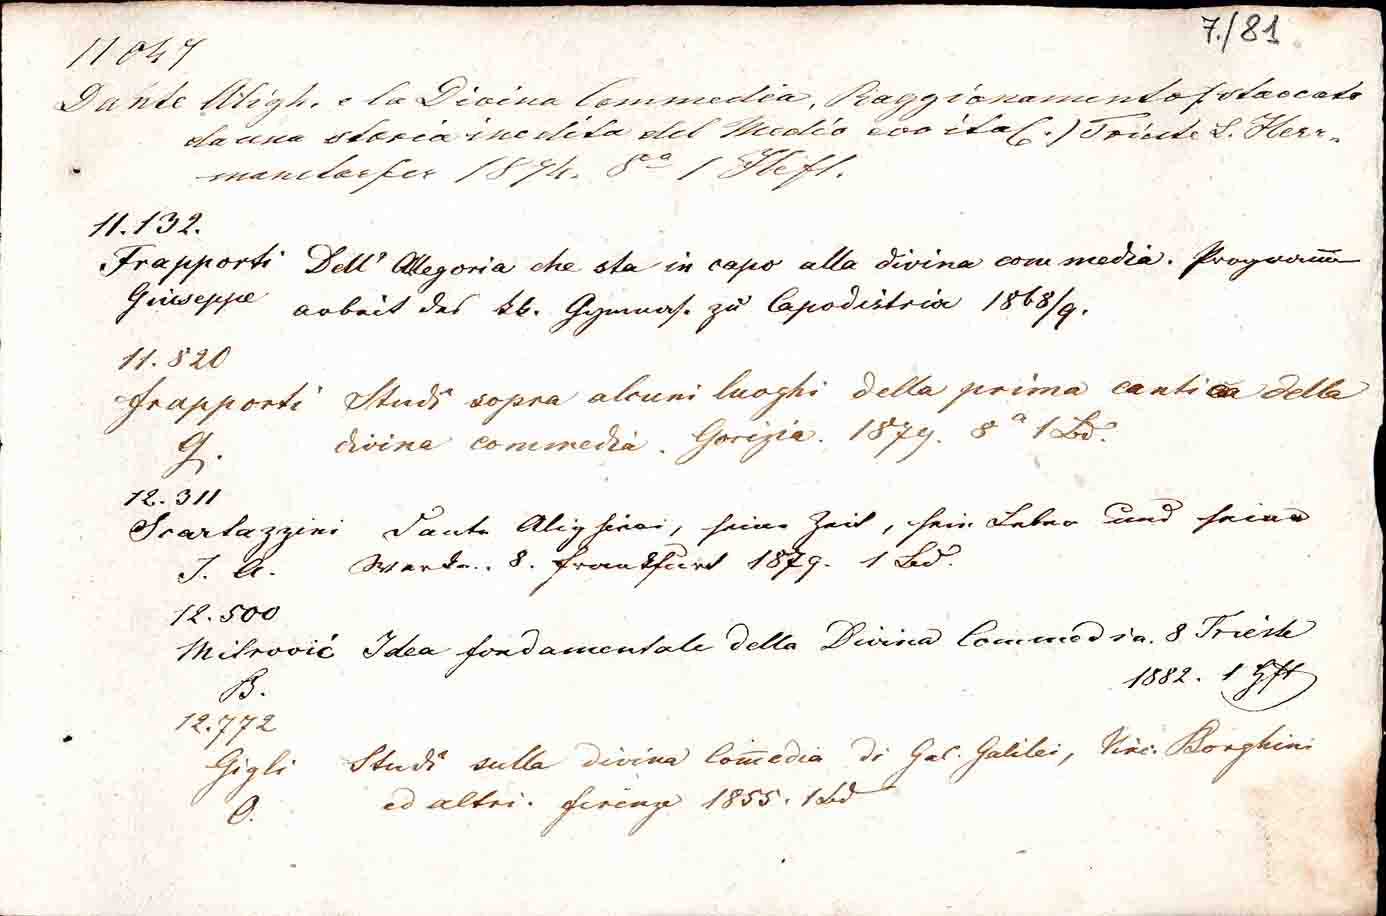 7./81
11047
Dante Aligh. e la Divina Commedia, Raggionamento (staccato
da una storia inedita del Medio evo ital.) Trieste L. Herr-
manstorfer 1874. 8° 1 Heft.
11.132.
Frapporti Dell' Allegoria che sta in capo alla divina commedia. Programm
Giuseppe arbeit des kk. Gymnas. zu Capodistria 1868/9.
11.820
Frapporti Studi sopra alcuni luoghi della prima cantica della
G. divina commedia. Gorizia. 1879. 8° 1 Bd.
12.311
Scartazzini Dante Alighieri, seine Zeit, sein Leben und seine
J. A. Werke.. 8. Frankfurt 1879. 1 Bd.
12.500
Mitrović Idea fondamentale della Divina Commedia. 8 Trieste
B. 1882. 1 Hft
12.772
Gigli Studi sulla divina Com̅edia di Gal. Galilei, Vinc. Borghini
O. ed altri. Firenze 1855. 1 Bd